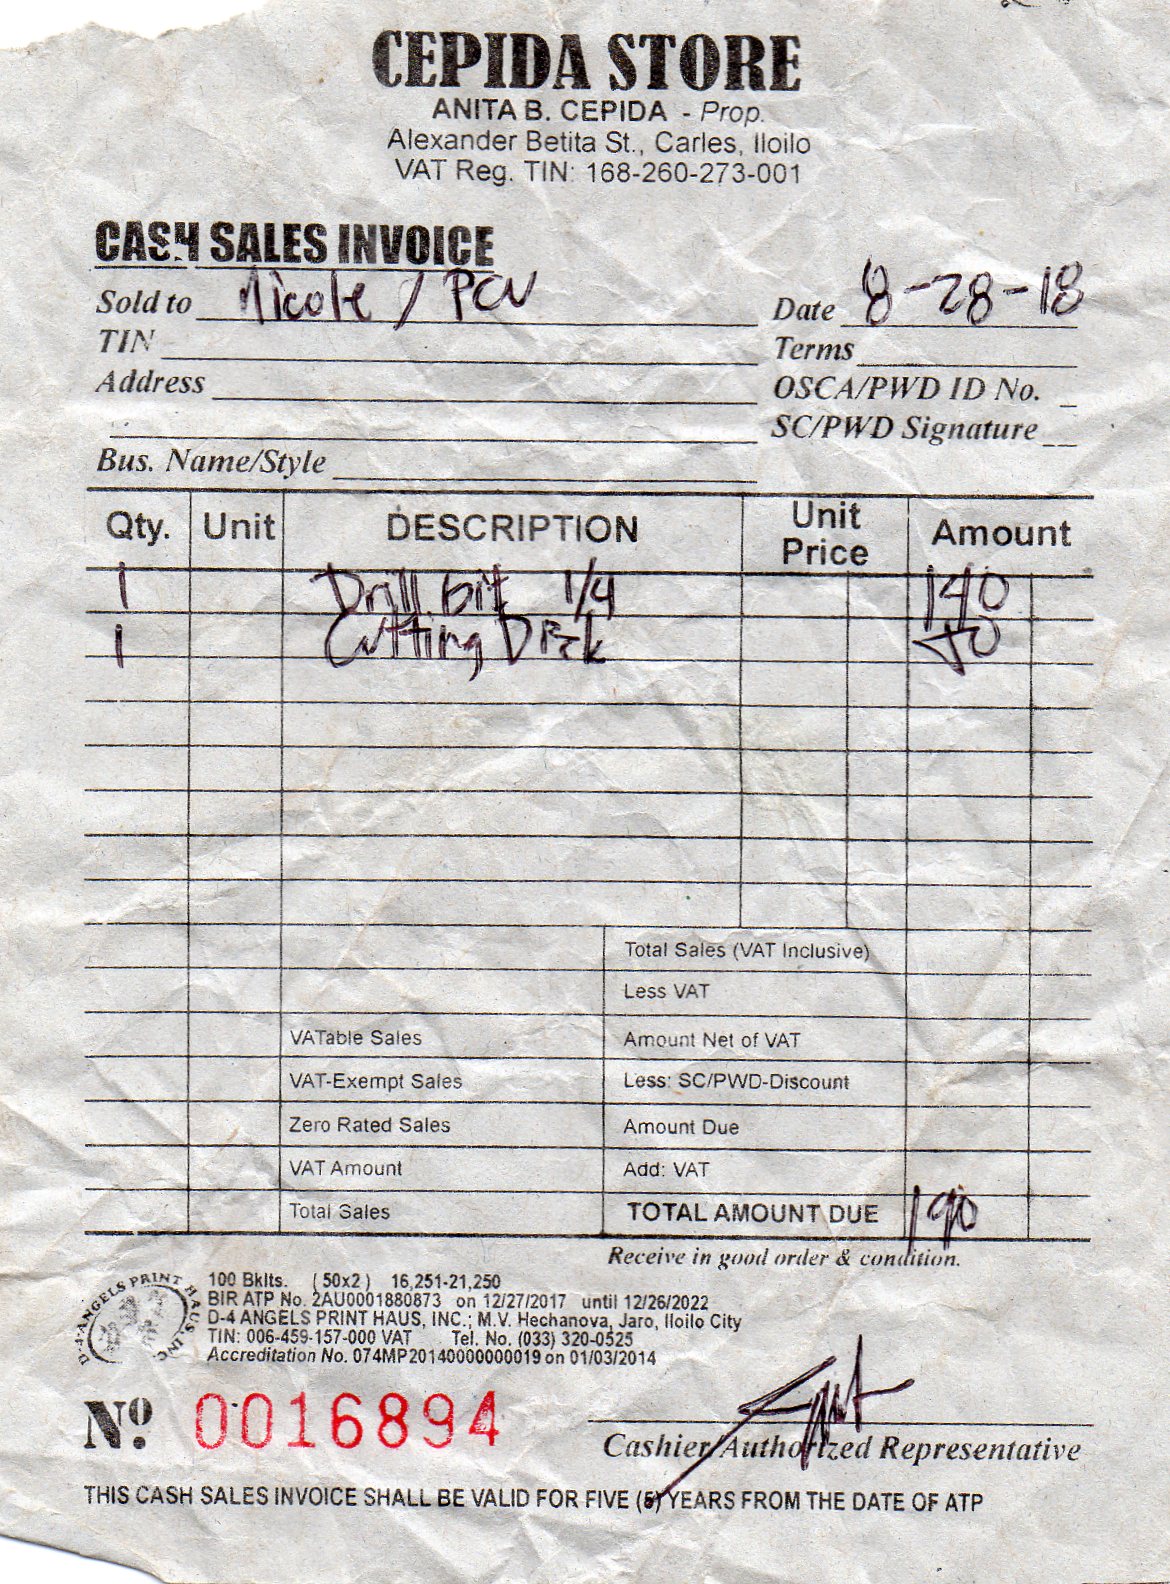 CEPIDA STORE
ANITA B. CEPIDA - Prop.
Alexander Betita St., Carles, Iloilo
VAT Reg. TIN: 168-260-273-001
CASH SALES INVOICE
Sold to Nicole / PCV Date 8-28-18
TIN Terms
Address OSCA/PWD ID No.
SC/PWD Signature
Bus. Name/Style
Qty. Unit DESCRIPTION Unit Price Amount
1 Drill bit 1/4 140
1 Cutting Disk 50
Total Sales (VAT Inclusive)
Less VAT
VATable Sales Amount Net of VAT
VAT-Exempt Sales Less: SC/PWD-Discount
Zero Rated Sales Amount Due
VAT Amount Add: VAT
Total Sales TOTAL AMOUNT DUE 190
Receive in good order & condition.
D-4 ANGELS PRINT HAUS, INC
100 Bklts. ( 50x2 ) 16,251-21,250
BIR ATP No. 2AU0001880873 on 12/27/2017 until 12/26/2022
D-4 ANGELS PRINT HAUS, INC.; M.V. Hechanova, Jaro, Iloilo City
TIN: 006-459-157-000 VAT Tel. No. (033) 320-0525
Accreditation No. 074MP20140000000019 on 01/03/2014
Nº. 0016894
Cashier/Authorized Representative
THIS CASH SALES INVOICE SHALL BE VALID FOR FIVE (5) YEARS FROM THE DATE OF ATP